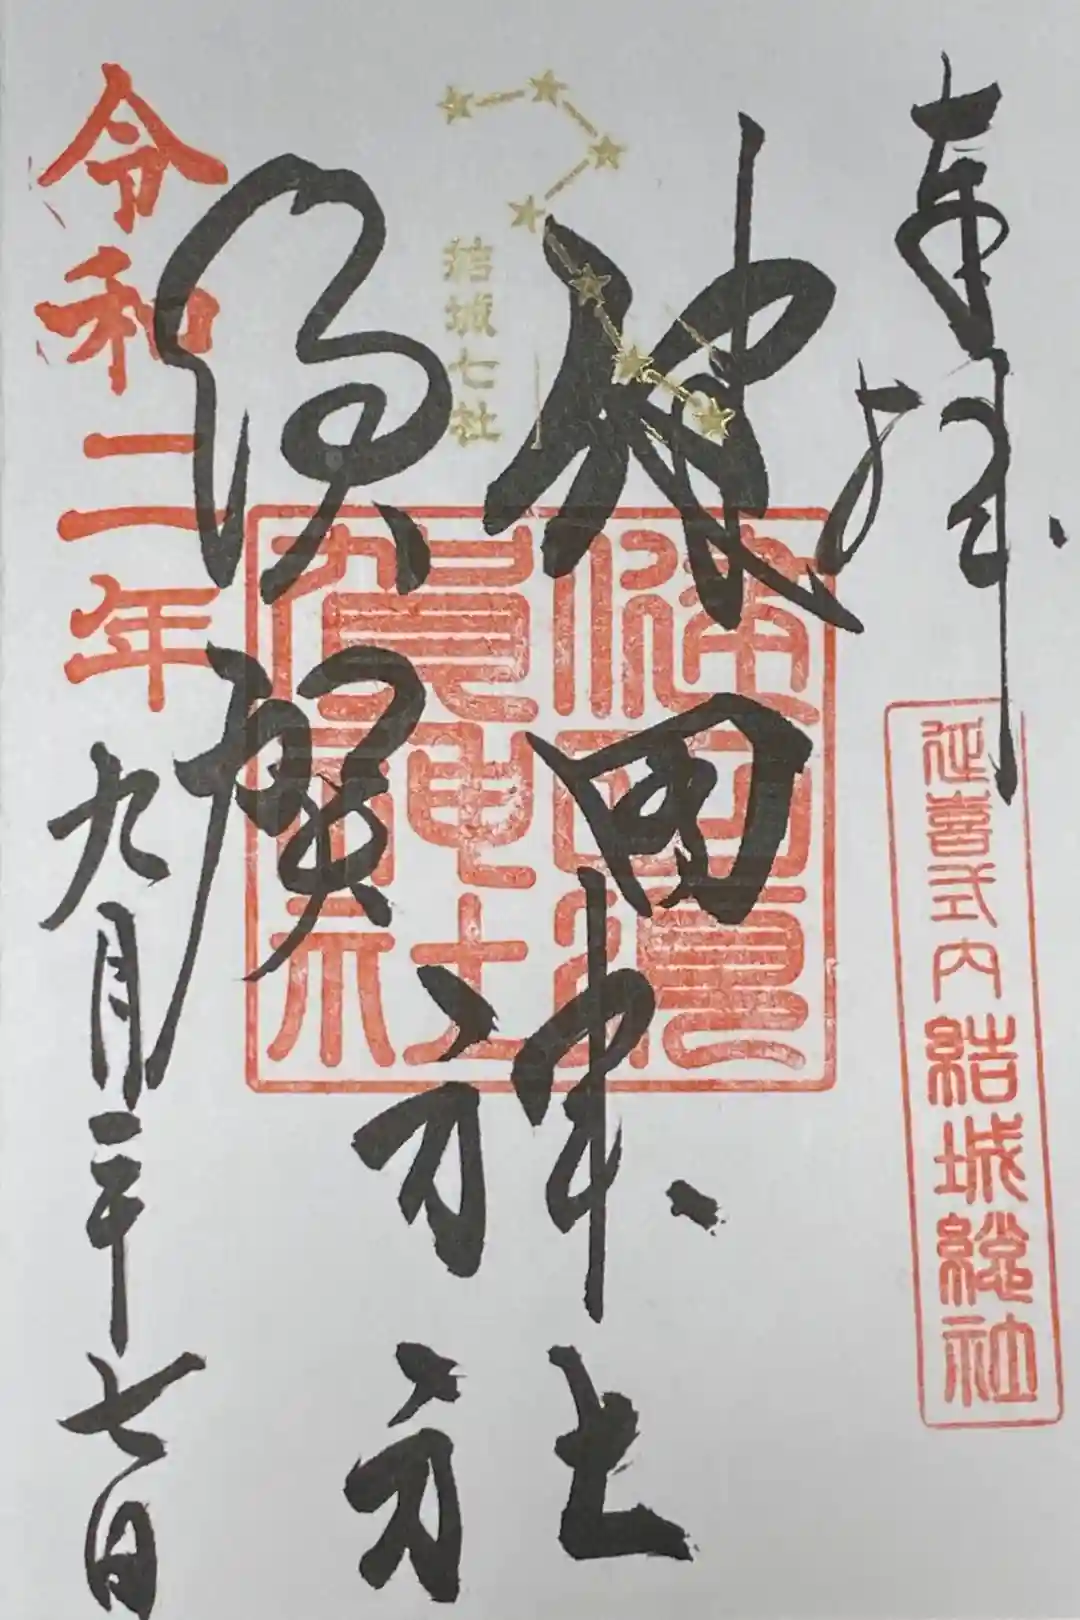 奉拝
延喜式内結城総社
健田
須賀
神社
結城七社
健田須
賀神社
令和二年九月二十七日